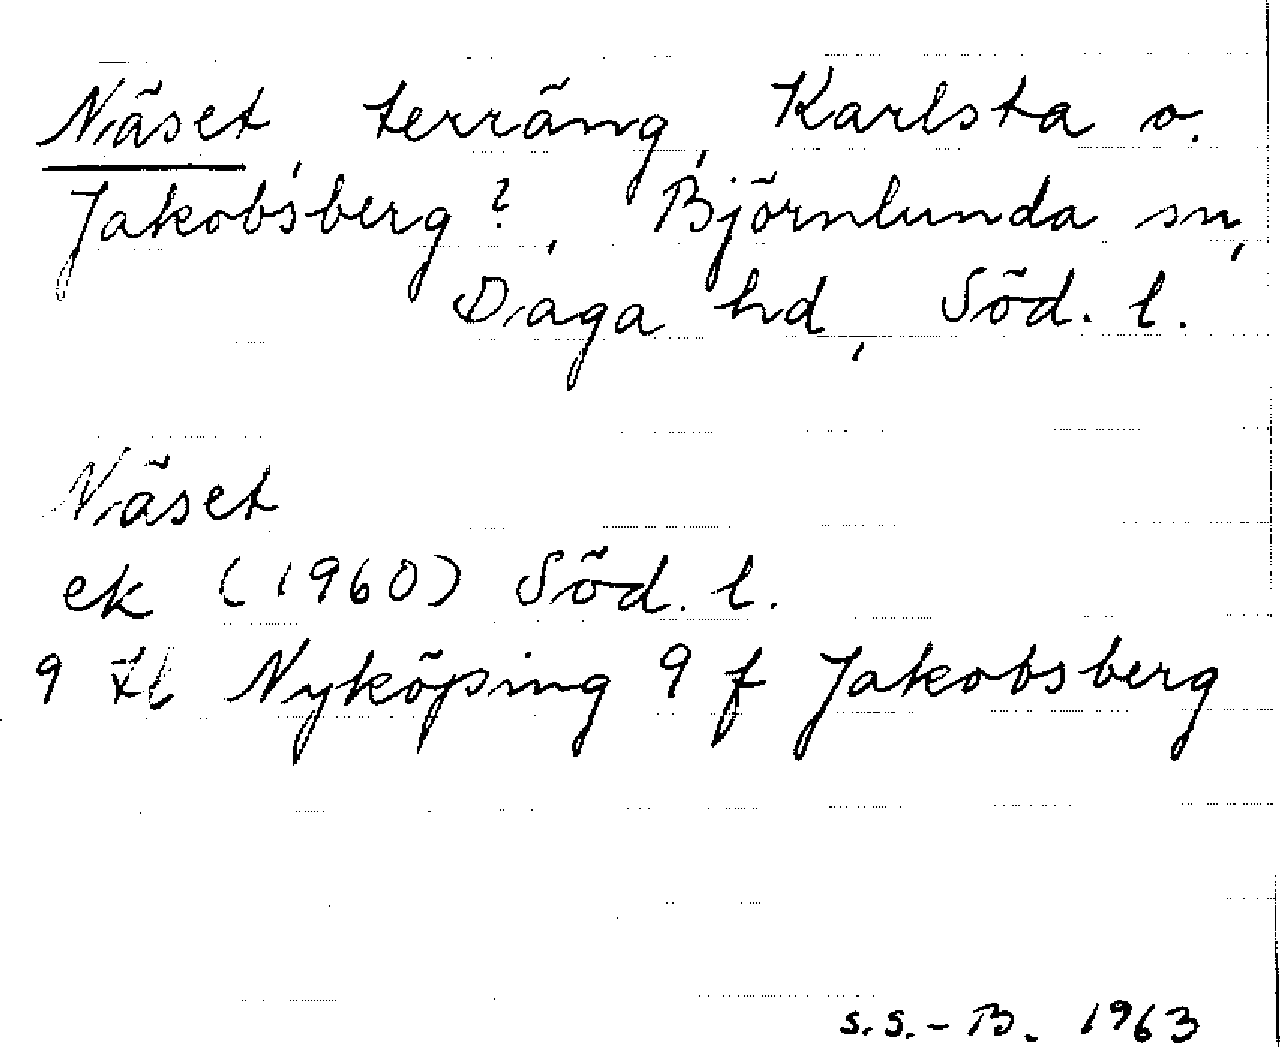 Näset, terräng, Karlsta o.
Jakobsberg?, Björnlunda sn,
Daga hd, Söd. l.
Näset
ek (1960) Söd. l.
9 Nyköping 9 f Jakobsberg
S.S.-B. 1963